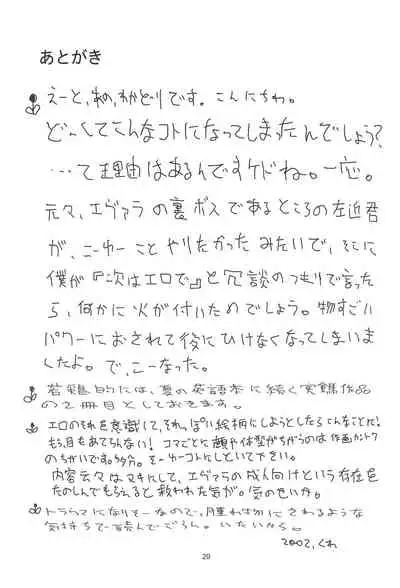 あとがき
えーと、わかどりです。こんにちわ。
どーしてこんなコトになってしまったんでしょう?
…て理由はあるんですケドね。一応。
元々、エヴァラの裏ボスであるところの左近君
が、こーゆーことやりたかったみたいで、そこに
僕が『次はエロで』と冗談のつもりで言った
ら、何かに火が付いたのでしょう。物すごい
パワーにおされて後にひけなくなってしまいま
したよ。で、こーなった。
若鶏的には、夏の英語本に続く実験作品
の2冊目としておきます。
エロのそれを意識して、それっぽい絵柄にしようとしたらこんなことに!
もう、目もあてらんない!コマごとに顔や体型がちがうのは作画カントク
のちがいです。多分。そーゆーコトにしといて下さい。
内容云々はヌキにして、エヴァラの成人向けという存在を
たのしんでもらえると救われた気が。気のせいか。
トラウマになりそーなので、腫れ物にさわるような
気持ちで読んでごらん。いたいから。
2002,くれ
29